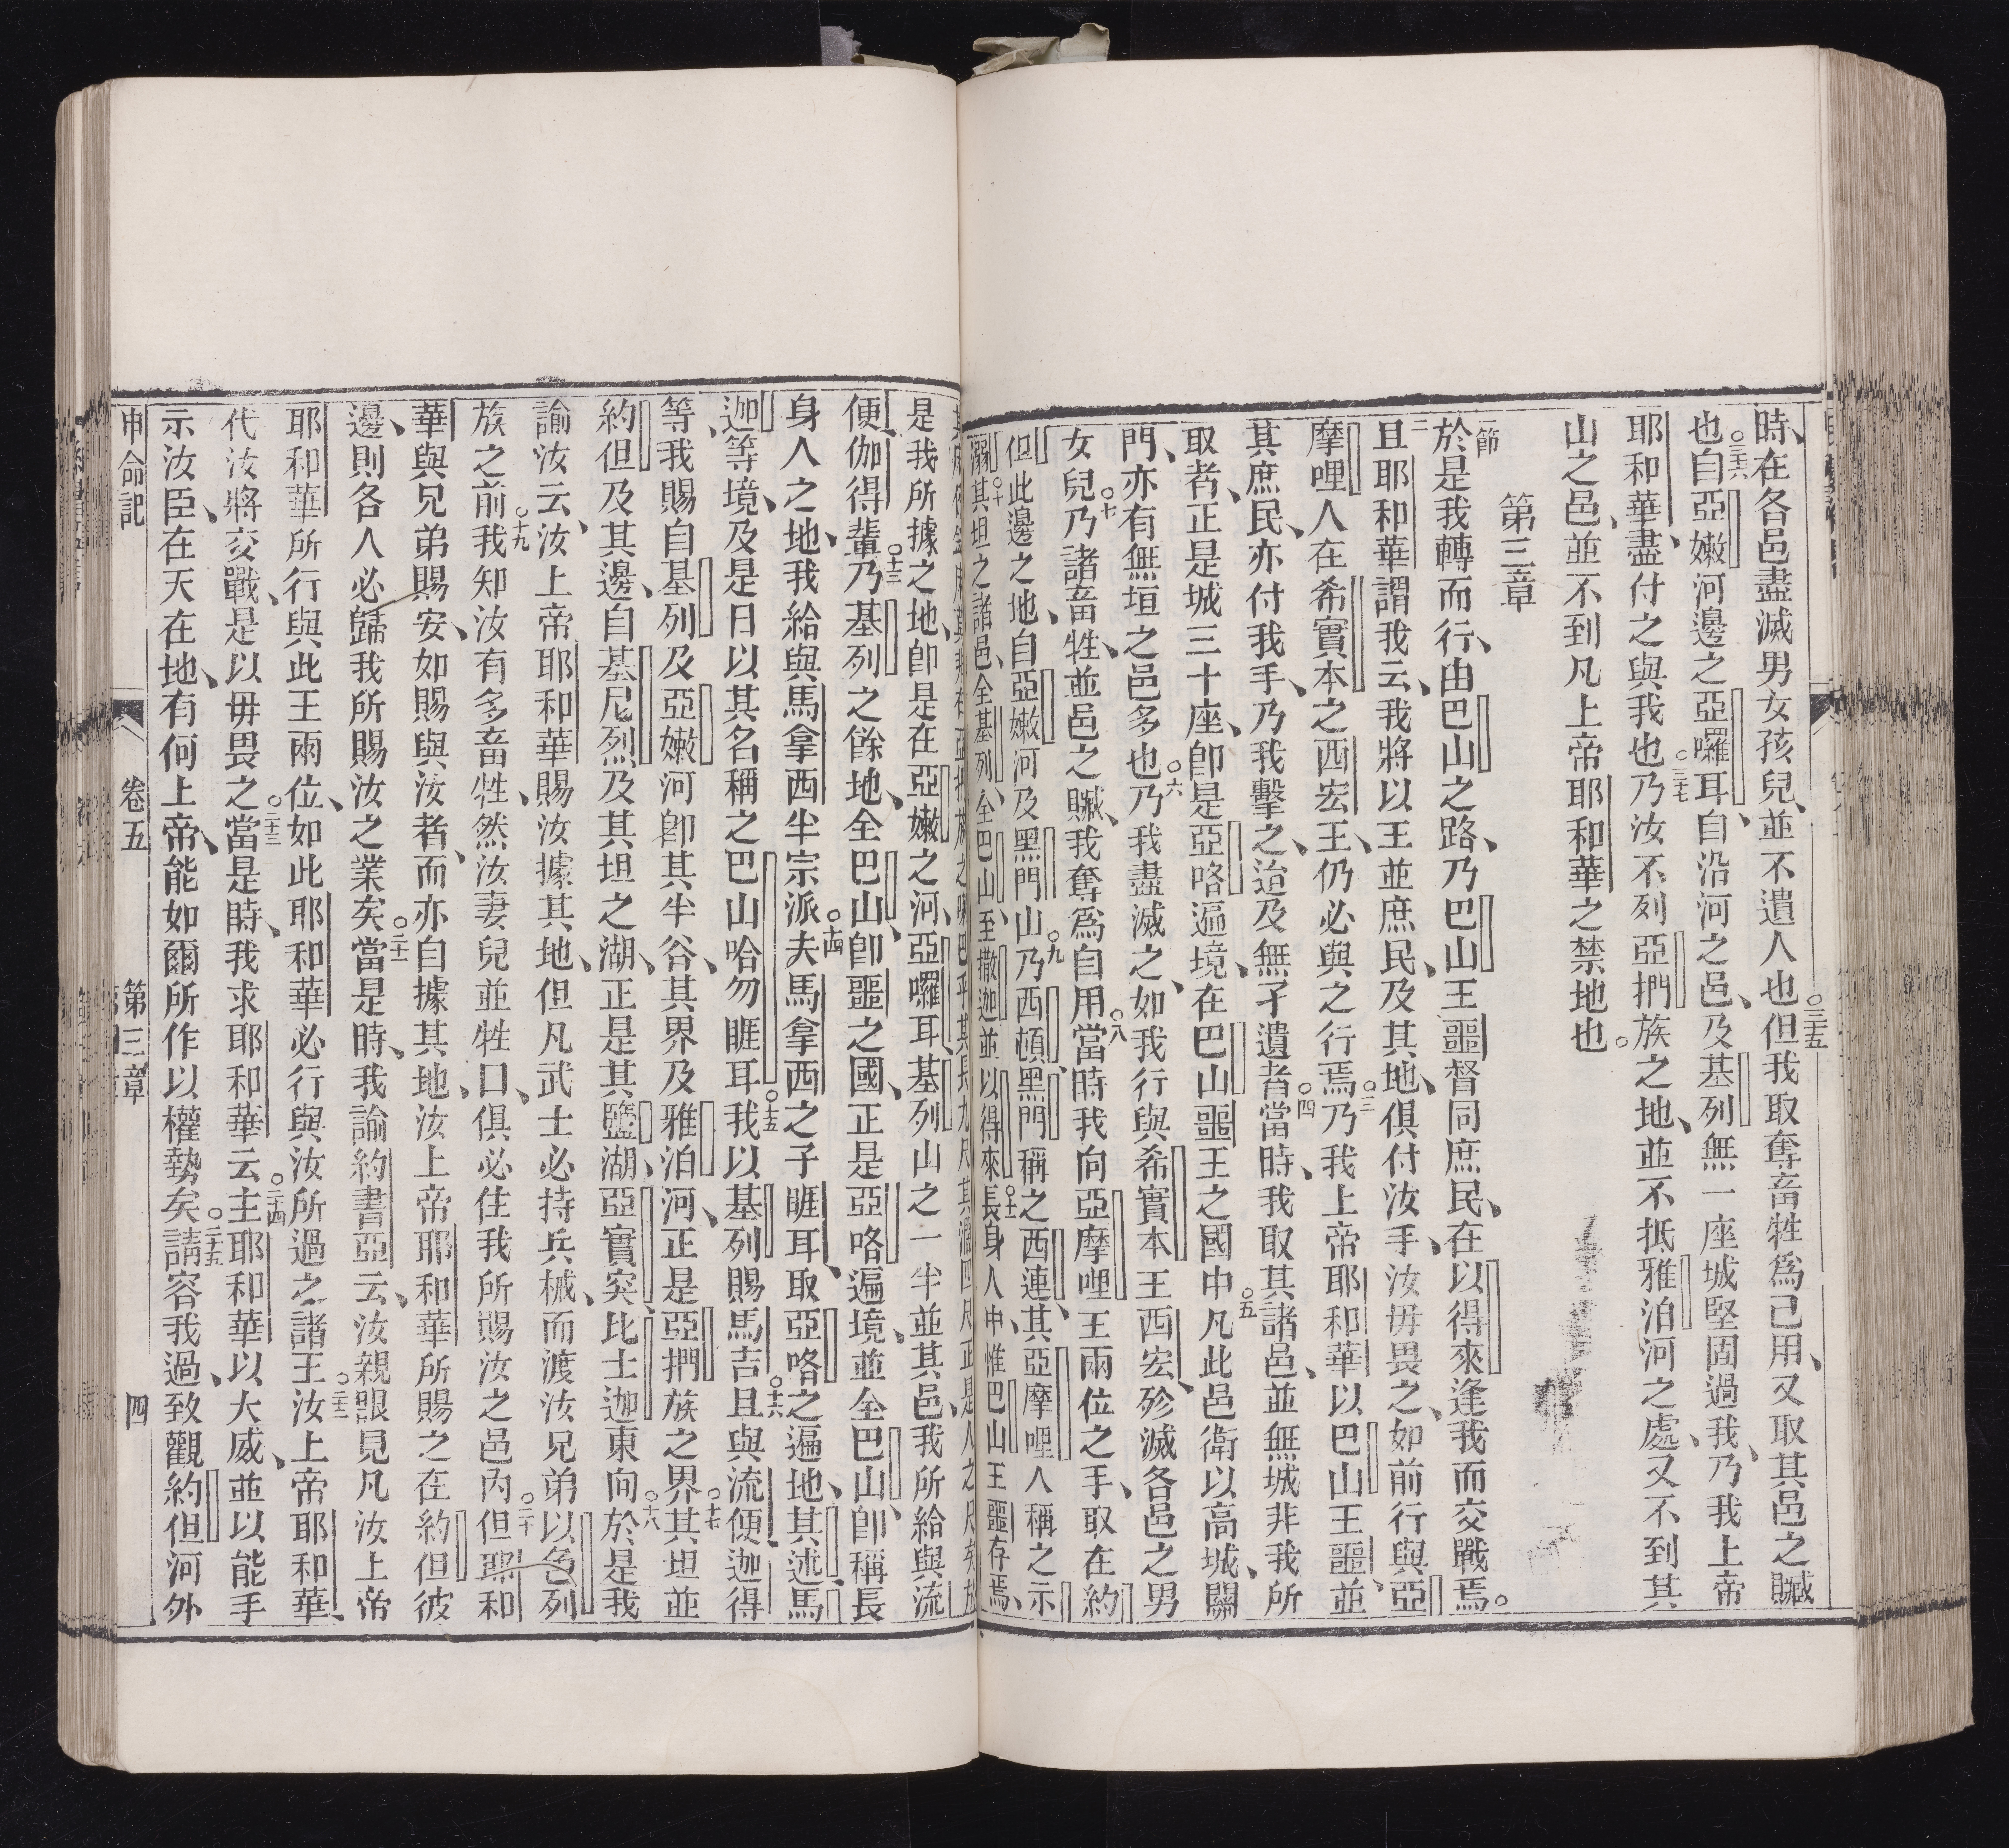 時、在各邑盡滅男女孩兒、並不遺人也○三十五但我取奪畜牲為己用、又取其邑之贓
也○三十六自亞嫩河邊之亞囉耳、自沿河之邑、及基列無一座城堅固過我、乃我上帝
耶和華、盡付之與我也○三十七乃汝不列亞捫族之地、並不抵雅泊河之處、又不到其
山之邑、並不到凡上帝耶和華之禁地也。
第三章
一節於是我轉而行、由巴山之路、乃巴山王噩督同庶民、在以得來逢我而交戰焉。
二且耶和華謂我云、我將以王並庶民、及其地、俱付汝手、汝毋畏之、如前行與亞
摩哩人在希實本之西宏王、仍必與之行焉○三乃我上帝耶和華以巴山王噩、並
其庶民、亦付我手、乃我擊之、迨及無孑遺者○四當時、我取其諸邑、並無城非我所
取者、正是城三十座、即是亞咯遍境、在巴山噩王之國中○五凡此邑衛以高城、關
門、亦有無垣之邑多也○六乃我盡滅之、如我行與希實本王西宏、殄滅各邑之男
女兒○七乃諸畜牲、並邑之贓、我奪為自用○八當時我向亞摩哩王兩位之手、取在約
但此邊之地、自亞嫩河及黑門山○九乃西頓黑門稱之西連、其亞摩哩人稱之示
溺○十其坦之諸邑、全基列、全巴山、至撒迦並以得來○十一長身人中、惟巴山王噩存焉、
族之嘛巴乎其長九尺其濶四尺正是人之尺矣
是我所據之地、即是在亞嫩之河、亞囉耳、基列山之一半並其邑、我所給與流
便伽得輩○十三乃基列之餘地、全巴山、即噩之國、正是亞咯遍境、並全巴山、即稱長
身人之地、我給與馬拿西半宗派○十四夫馬拿西之子睚耳、取亞咯之遍地、其述馬
迦等境、及是日以其名稱之巴山哈勿睚耳○十五我以基列賜馬吉○十六且與流便、迦得
等、我賜自基列及亞嫩河即其半谷、其界及雅泊河、正是亞捫族之界○十七其坦並
約但及其邊、自基尼烈及其坦之湖、正是其鹽湖、亞實突、比士迦東向○十八於是我
諭汝云、汝上帝耶和華賜汝據其地、但凡武士必持兵械、而渡汝兄弟以色列
族之前○十九我知汝有多畜牲、然汝妻兒並牲口、俱必住我所賜汝之邑內○二十但耶和
華與兄弟賜安、如賜與汝者、而亦自據其地、汝上帝耶和華所賜之在約但彼
邊、則各人必歸我所賜汝之業矣○二十一當是時、我諭約書亞云、汝親眼見凡汝上帝
耶和華所行與此王兩位、如此耶和華必行與汝所過之諸王○二十二汝上帝耶和華、
代汝將交戰、是以毋畏之○二十三當是時、我求耶和華云○二十四主耶和華以大威、並以能手
示汝臣、在天在地、有何上帝、能如爾所作以權勢矣○二十五請容我過、致觀約但河外
申命記　卷五　第三章　四